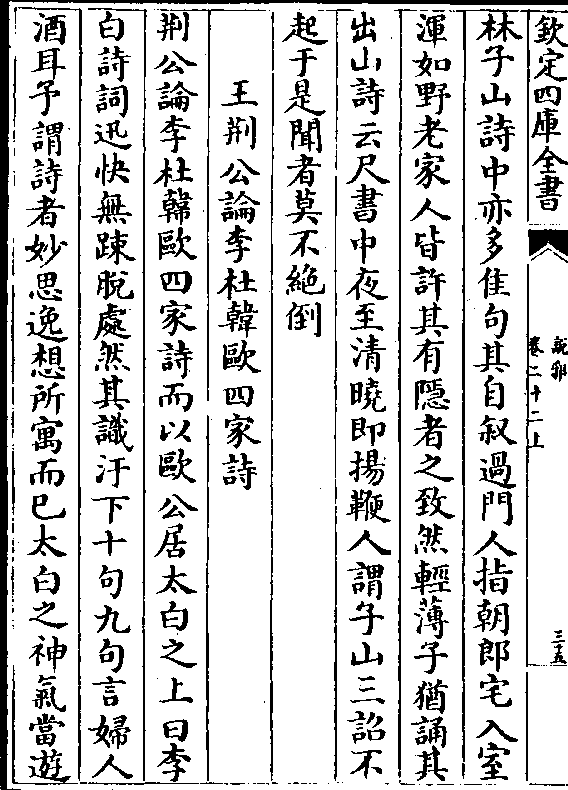 欽定四庫全書
說郛
卷二十二上
三十五
林子山詩中亦多佳句其自叙過門人指朝郎宅入室
渾如野老家人皆許其有隱者之致然輕薄子猶誦其
出山詩云尺書中夜至清曉即揚鞭人謂子山三詔不
起于是聞者莫不絶倒
王荆公論李杜韓歐四家詩
荆公論李杜韓歐四家詩而以歐公居太白之上曰李
白詩詞迅快無踈脫處然其識汙下十句九句言婦人
酒耳予謂詩者妙思逸想所寓而已太白之神氣當遊